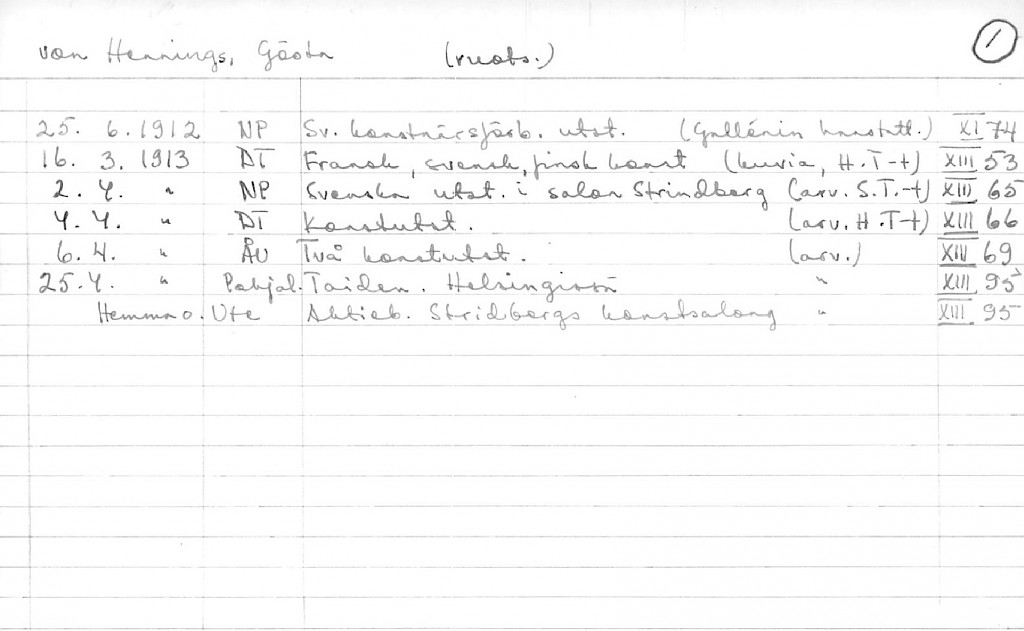 von Hennings, Gösta (ruots.) 1
25. 6. 1912 NP Sv. konstnärsförb. utst. (Gallénin kunstutt.) XI 74
16. 3. 1913 DT Fransk, svensk, finsk konst (kuvia, H.T-t) XIII 53
2. 4. " NP Svenska utst. i salon Strindberg (arv. S.T.-t) XIII 65
4. 4. " DT Konstutst. (arv. H.T-t) XIII 66
6. 4. " ÅU Två konstutst. (arv.) XIII 69
25. 4. " Pohjal. Taiden. Helsingissä " XIII 95
Hemma o. Ute Aktieb. Stridbergs konstsalong " XIII 95